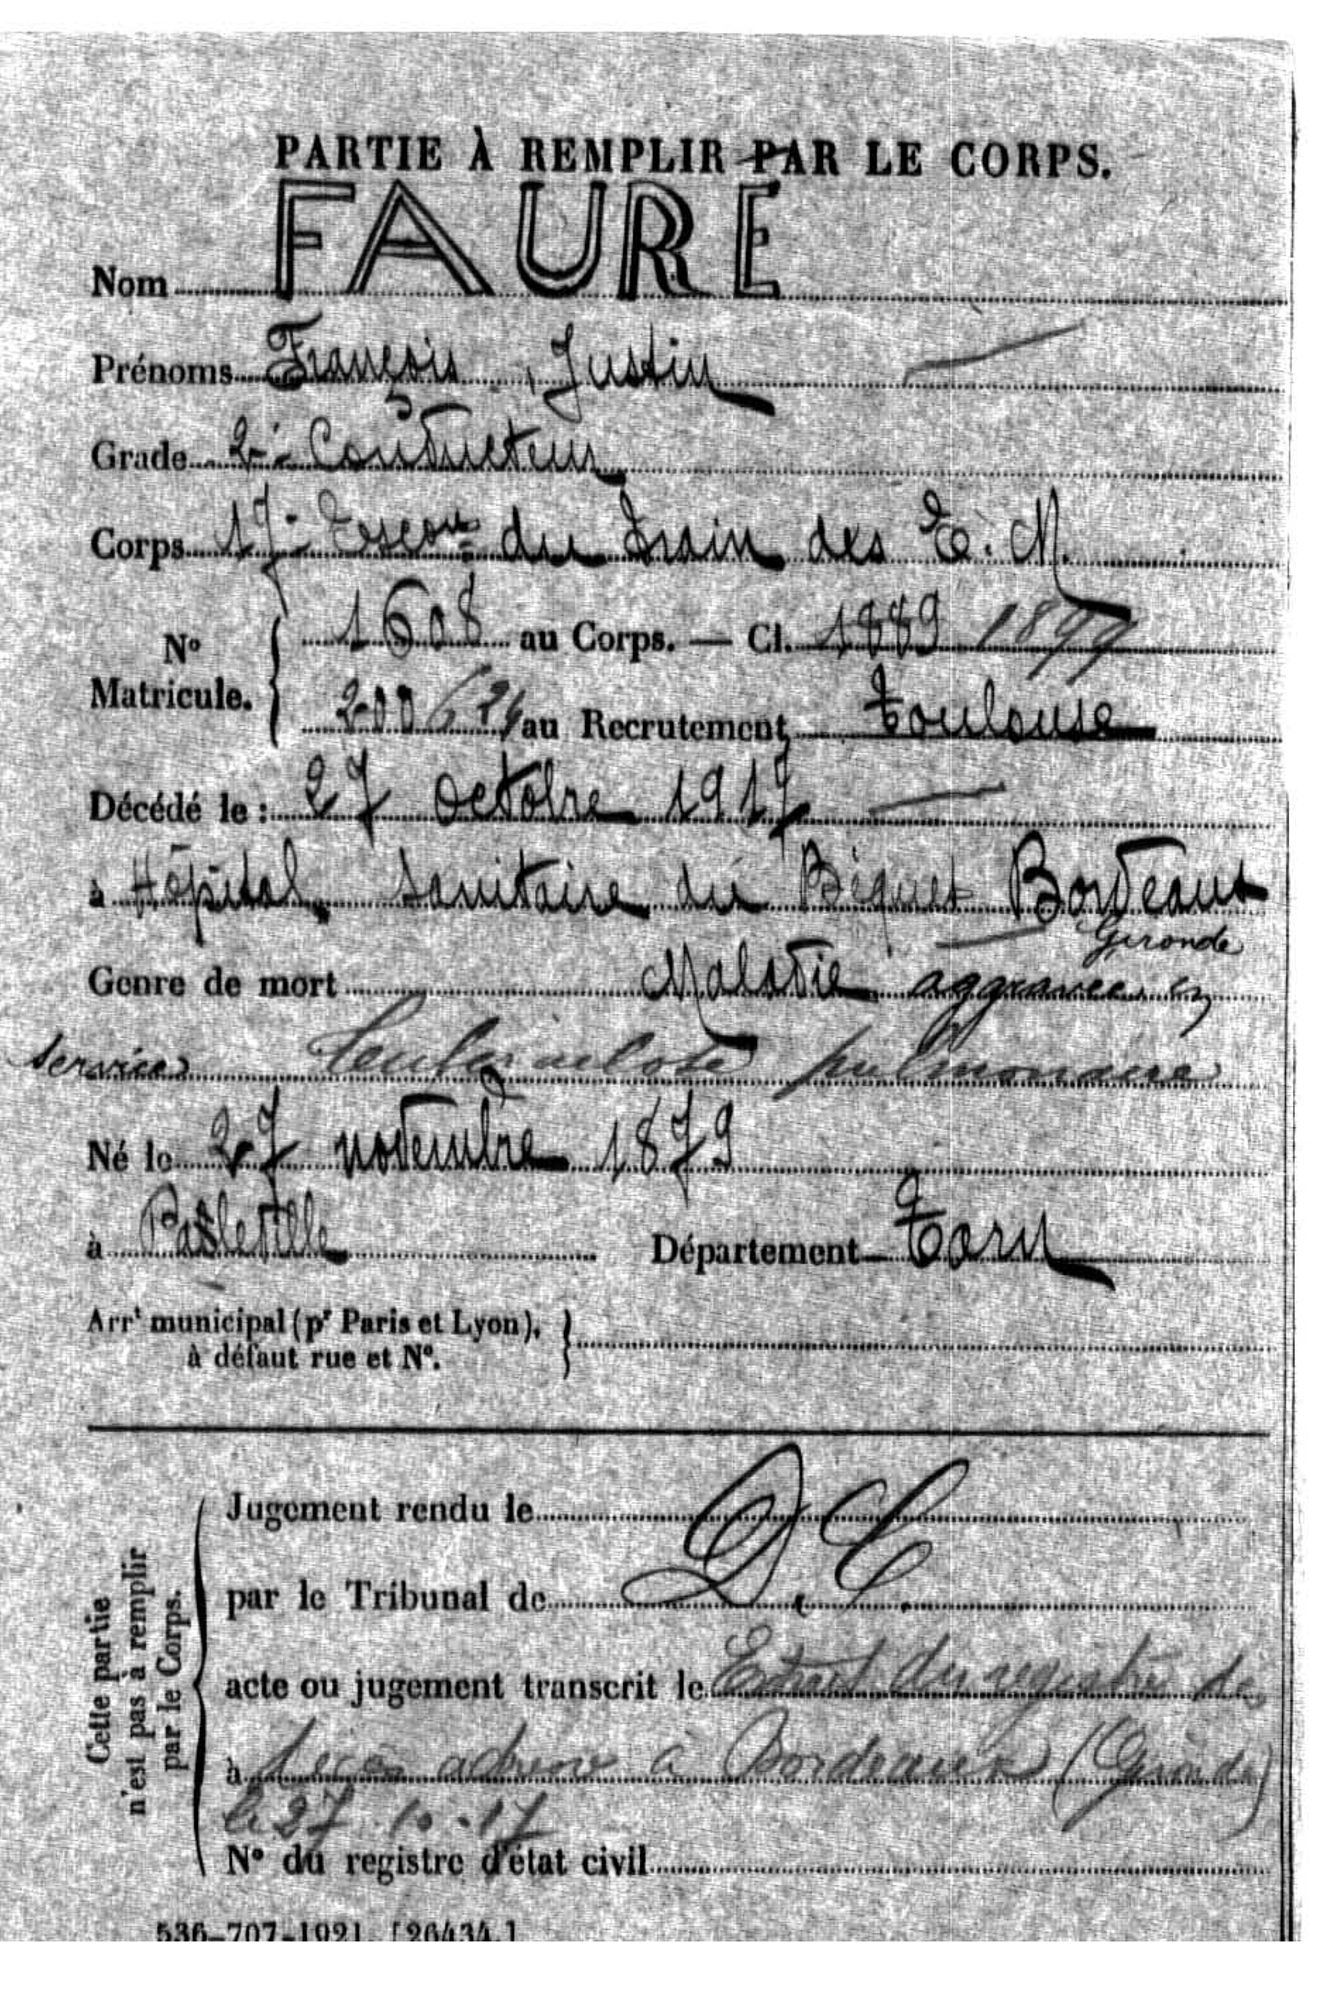 PARTIE À REMPLIR PAR LE CORPS.
Nom FAURE
Prénoms François, Justin
Grade 2e Conducteur
Corps 17e Escon du Train des E. M.
No Matricule. 1608 au Corps. — Cl. 1889 1899
au Recrutement Toulouse
Décédé le : 27 octobre 1917
à Hôpital Sanitaire du Béquet Bordeaux
Gironde
Genre de mort Maladie aggravée en
service Tuberculose pulmonaire
Né le 27 novembre 1879
à Département Tarn
Arrt municipal (pr Paris et Lyon),
à défaut rue et No.
Cette partie
n'est pas à remplir
par le Corps.
Jugement rendu le
par le Tribunal de D. C.
acte ou jugement transcrit le Extrait du registre de
à décès à Bordeaux (Gironde)
le 27.10.17
No du registre d'état civil
536-707-1921. [26434.]